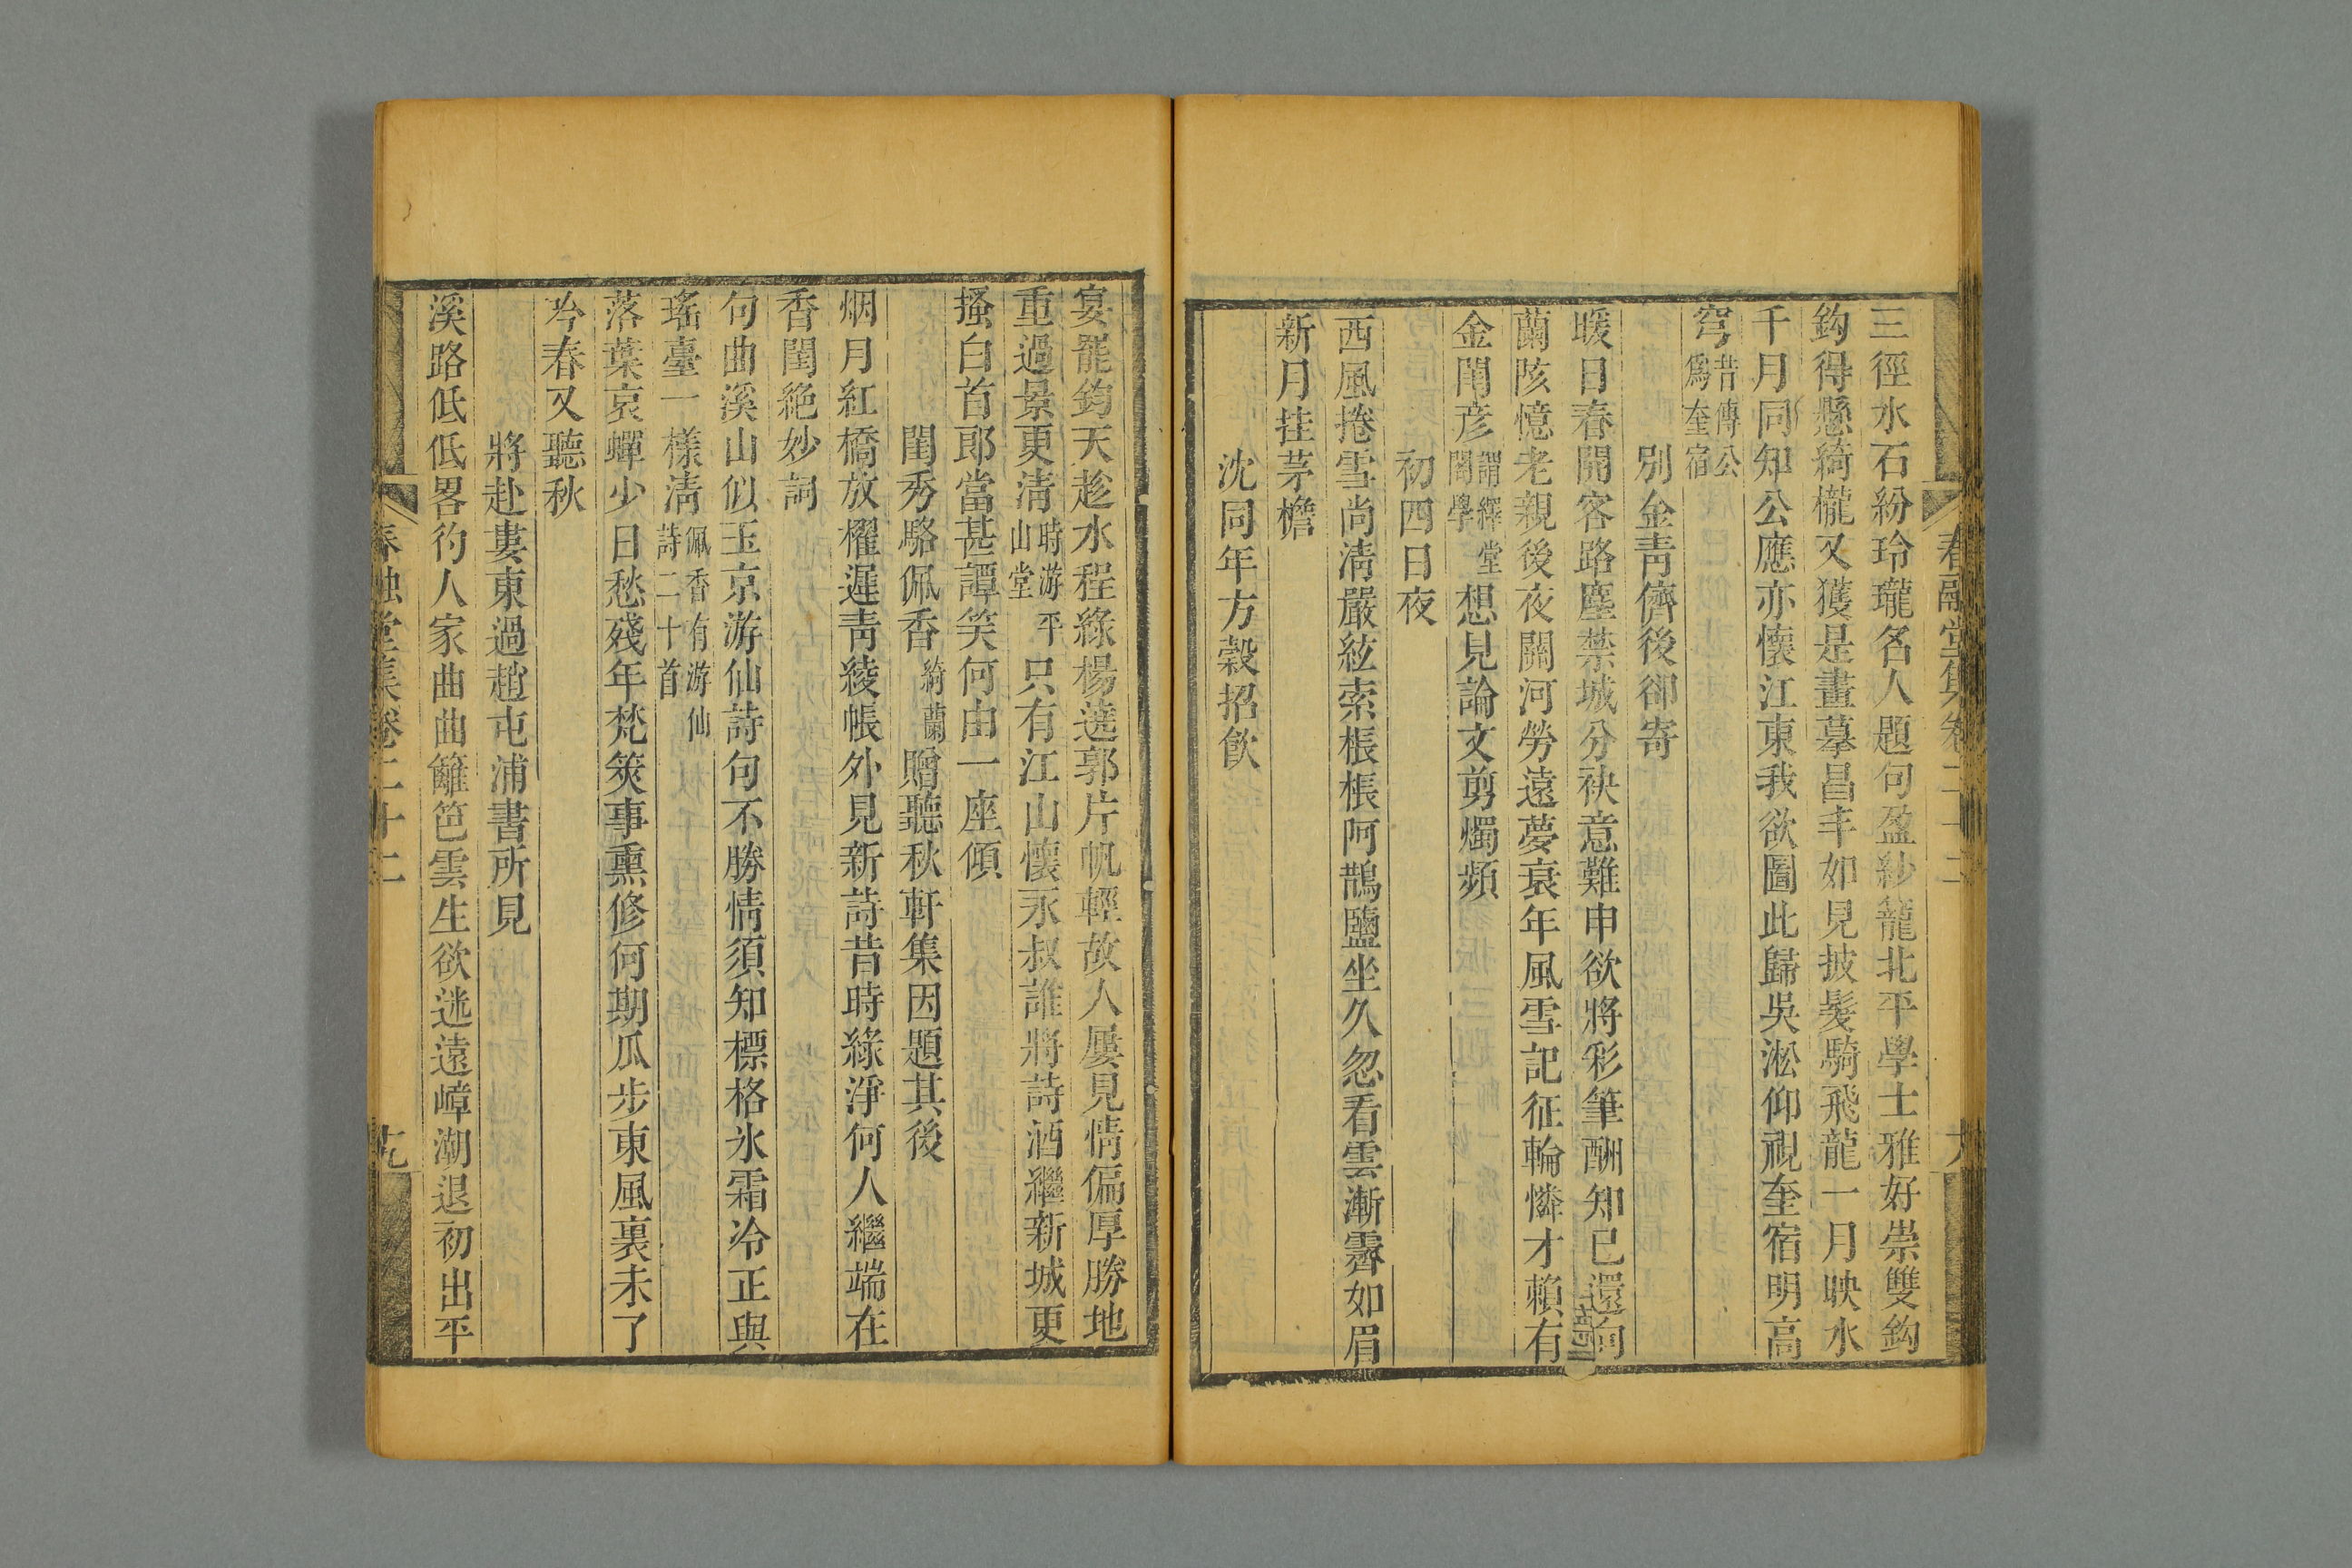 三徑水石紛玲瓏名人題句盈紗籠北平學士雅好崇雙鈎
鈎得懸綺櫳又獲是畫摹昌丰如見披髮騎飛龍一月映水
千月同知公應亦懷江東我欲圖此歸吳淞仰視奎宿明高
穹昔傳公爲奎宿
別金靑儕後卻寄
暖日春開客路塵禁城分袂意難申欲將彩筆酬知己還向
蘭陔憶老親後夜關河勞遠夢衰年風雪記征輪憐才賴有
金閨彦謂繹堂閣學想見論文剪燭頻
初四日夜
西風捲雪尚淸嚴絃索棖棖阿鵲鹽坐久忽看雲漸霽如眉
新月挂茅檐
沈同年方穀招飮
春融堂集卷二十二
宴罷鈞天趁水程綠楊遶郭片帆輕故人屢見情偏厚勝地
重過景更淸時游平山堂只有江山懷永叔誰將詩酒繼新城更
搔白首郎當甚譚笑何由一座傾
閨秀駱佩香綺蘭贈聽秋軒集因題其後
烟月紅橋放櫂遲靑綾帳外見新詩昔時綠淨何人繼端在
香閨絶妙詞
句曲溪山似玉京游仙詩句不勝情須知標格氷霜冷正與
瑤臺一樣淸佩香有游仙詩二十首
落葉哀蟬少日愁殘年梵筴事熏修何期瓜步東風裏未了
吟春又聽秋
將赴婁東過趙屯浦書所見
溪路低低畧彴人家曲曲籬笆雲生欲迷遠嶂潮退初出平
春融堂集卷二十二